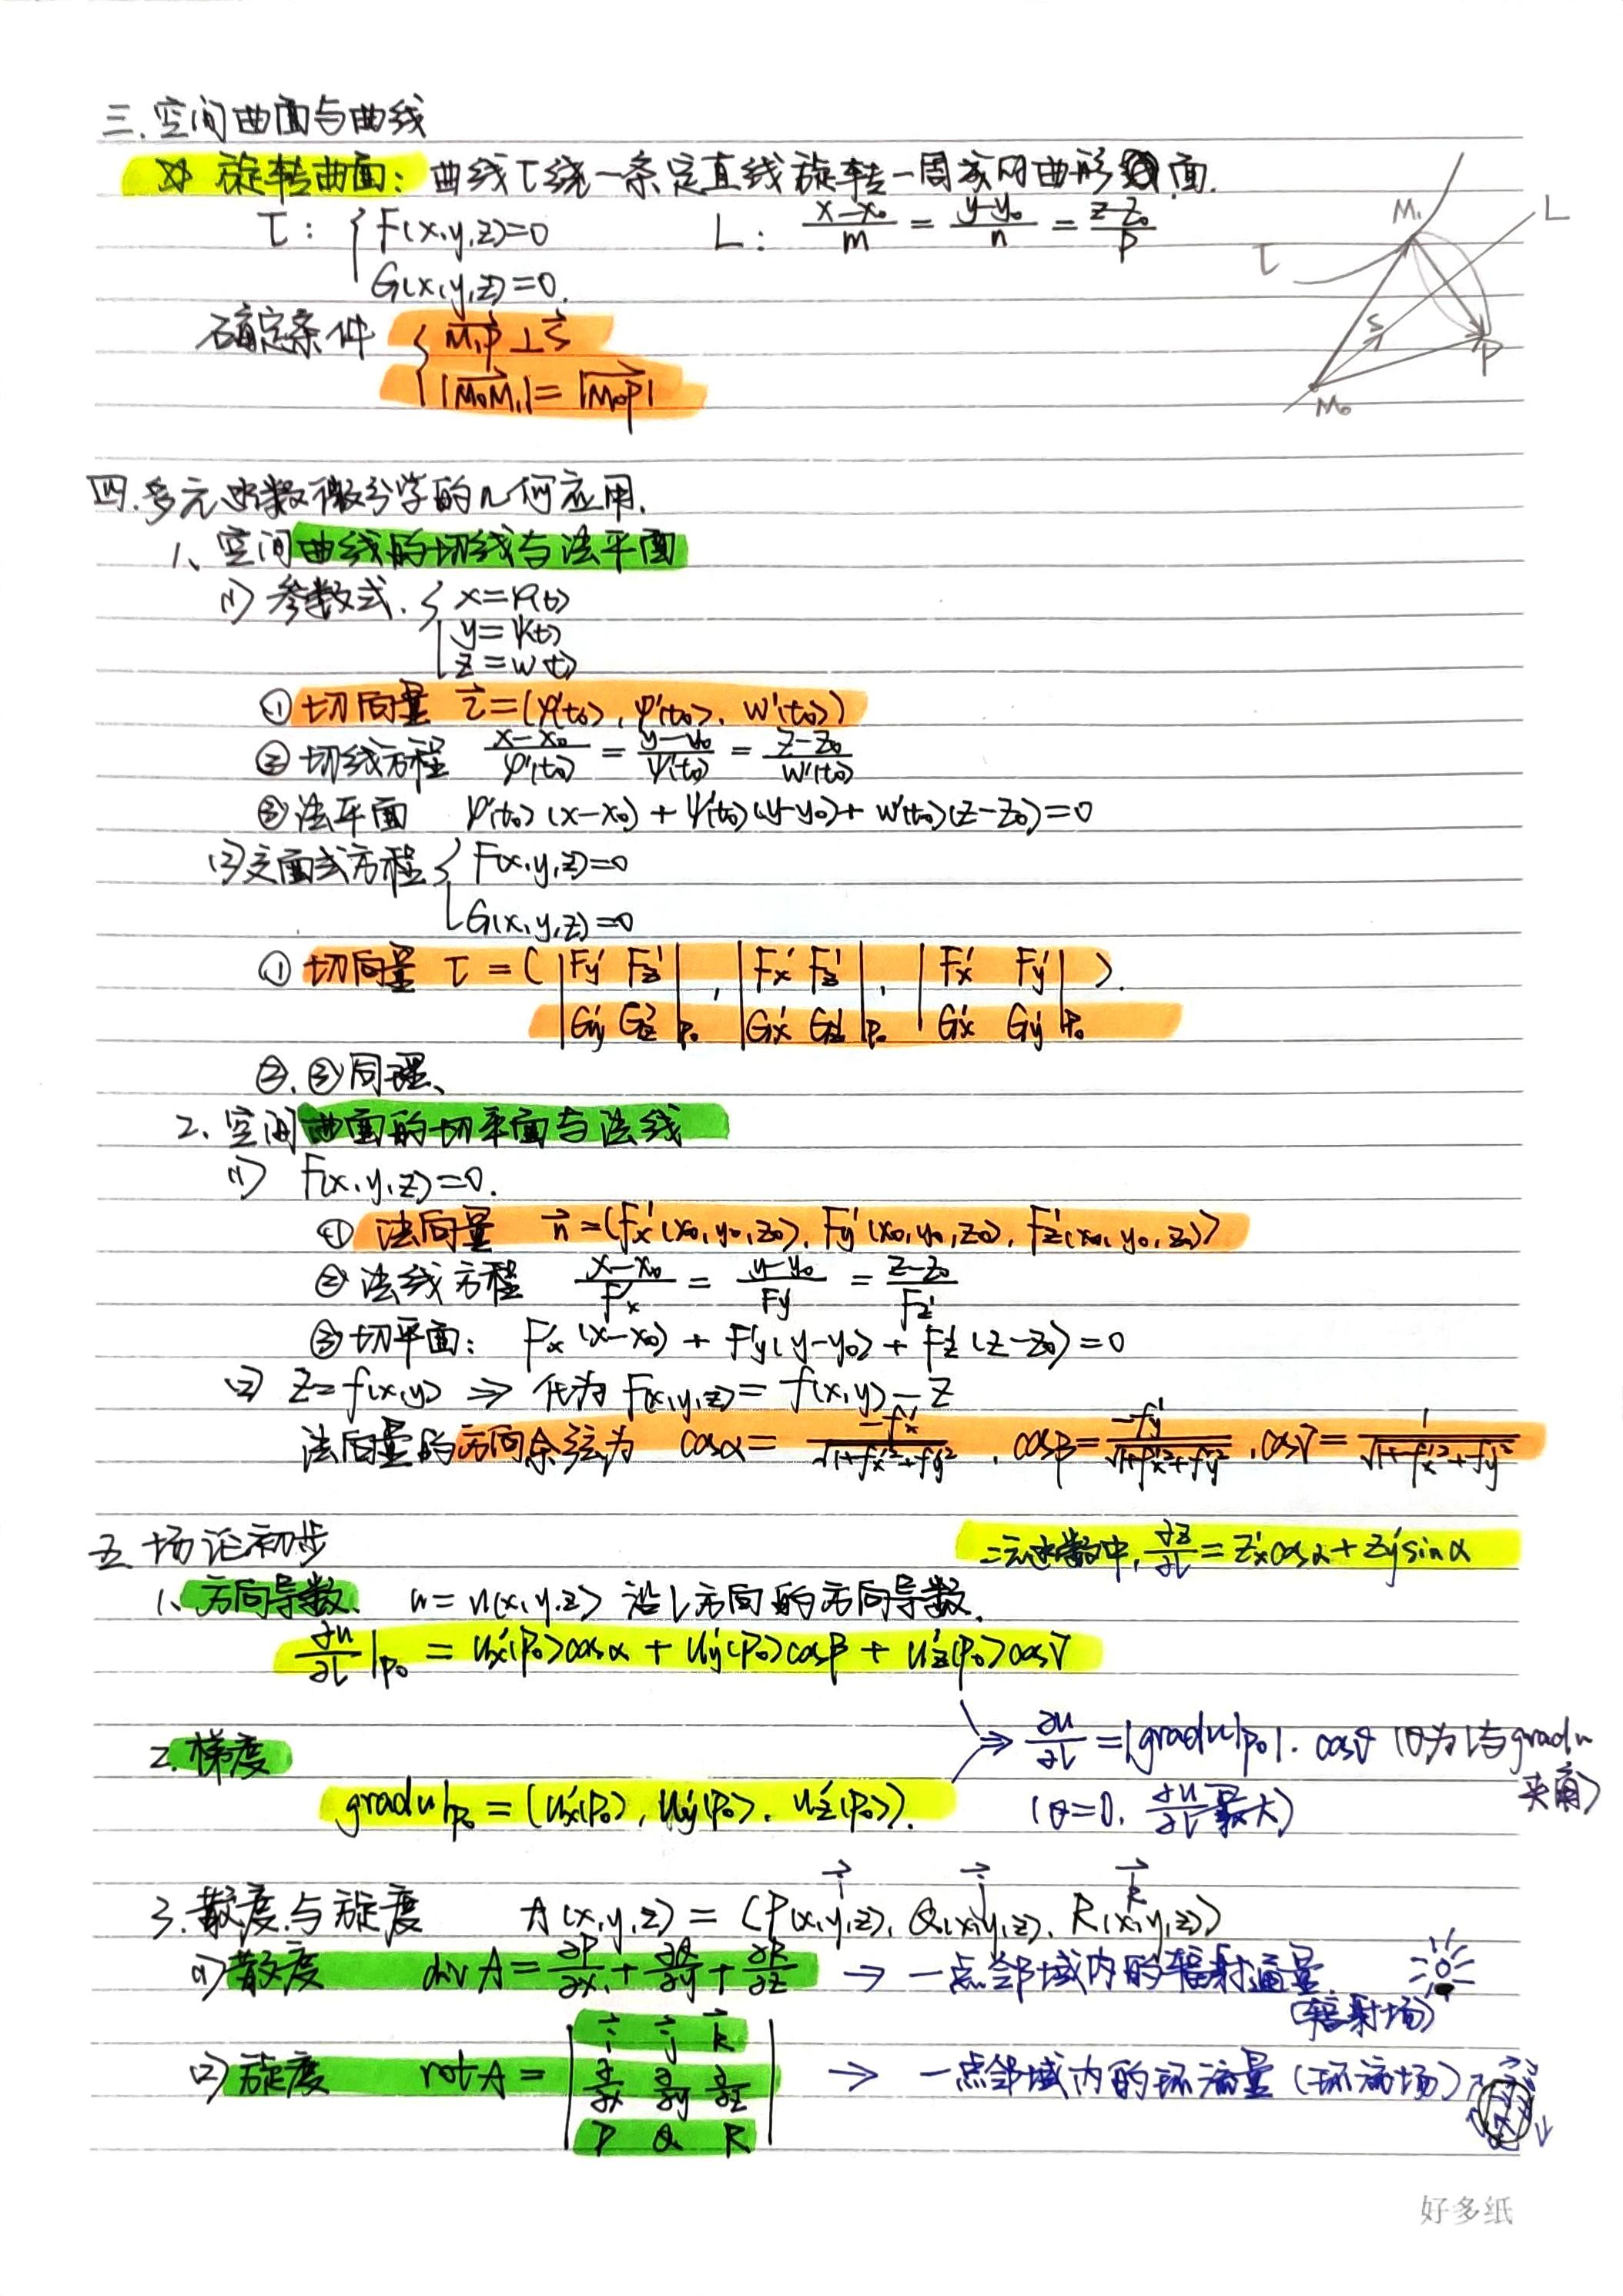 三.空间曲面与曲线
☆ 旋转曲面: 曲线τ绕一条定直线旋转一周成的曲形面.
τ: { F(x,y,z)=0 L: (x-x₀)/m = (y-y₀)/n = (z-z₀)/p
G(x,y,z)=0.
确定条件 { M₁P⃗ ⊥ S⃗
|M₀M₁⃗| = |M₀P⃗|
M₁ L τ S P M₀
四.多元函数微分学的几何应用.
1、空间曲线的切线与法平面
(1) 参数式. { x=φ(t)
y=ψ(t)
z=w(t)
① 切向量 τ⃗=(φ'(t₀), ψ'(t₀), w'(t₀))
② 切线方程 (x-x₀)/φ'(t₀) = (y-y₀)/ψ'(t₀) = (z-z₀)/w'(t₀)
③ 法平面 φ'(t₀)(x-x₀) + ψ'(t₀)(y-y₀) + w'(t₀)(z-z₀)=0
(2) 交面式方程 { F(x,y,z)=0
G(x,y,z)=0
① 切向量 τ = ( |Fy' Fz'| , |Fx' Fz'| , |Fx' Fy'| ).
|Gy' Gz'|P₀ |Gx' Gz'|P₀ |Gx' Gy'|P₀
②.③同理、
2、空间曲面的切平面与法线
(1) F(x,y,z)=0.
① 法向量 n⃗=(Fx'(x₀,y₀,z₀), Fy'(x₀,y₀,z₀), Fz'(x₀,y₀,z₀))
② 法线方程 (x-x₀)/Fx' = (y-y₀)/Fy' = (z-z₀)/Fz'
③ 切平面: Fx'(x-x₀) + Fy'(y-y₀) + Fz'(z-z₀)=0
(2) z=f(x,y) ⇒ 化为 F(x,y,z)=f(x,y)-z
法向量的方向余弦为 cosα= -fx'/√(1+fx'²+fy'²) , cosβ= -fy'/√(1+fx'²+fy'²) , cosγ= 1/√(1+fx'²+fy'²)
五 场论初步
二元函数中, ∂z/∂l = zx'cosα + zy'sinα
1、方向导数、 u=u(x,y,z) 沿l方向的方向导数.
∂u/∂l|P₀ = ux'(P₀)cosα + uy'(P₀)cosβ + uz'(P₀)cosγ
⇒ ∂u/∂l = |gradu|P₀|·cosθ (θ为l与gradu
夹角)
2.梯度
gradu|P₀ = (ux'(P₀), uy'(P₀), uz'(P₀)).
(θ=0, ∂u/∂l最大)
i⃗ j⃗ k⃗
3.散度与旋度 A(x,y,z) = (P(x,y,z), Q(x,y,z), R(x,y,z))
(1) 散度 divA = ∂P/∂x + ∂Q/∂y + ∂R/∂z → 一点邻域内的辐射通量
(辐射场)
(2) 旋度 rotA = | i⃗ j⃗ k⃗ | → 一点邻域内的环流量 (环流场)
| ∂/∂x ∂/∂y ∂/∂z |
| P Q R |
好多纸